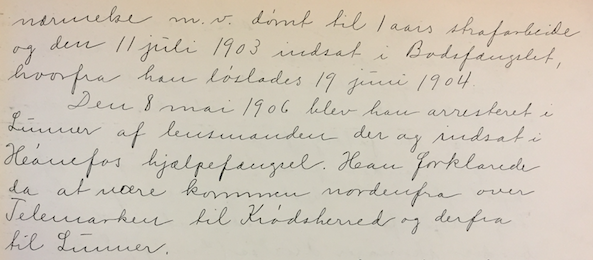 nærmelse m.v. dømt til 1 aars strafarbeide
og den 11 juli 1903 indsat i Bodsfængslet,
hvorfra han løslades 19 juni 1904.
Den 8 mai 1906 blev han arresteret i
Lunner af lensmanden der og indsat i
Hønefos hjælpefængsel. Han forklarede
da at være kommen nordenfra over
Telemarken til Krødsherred og derfra
til Lunner.